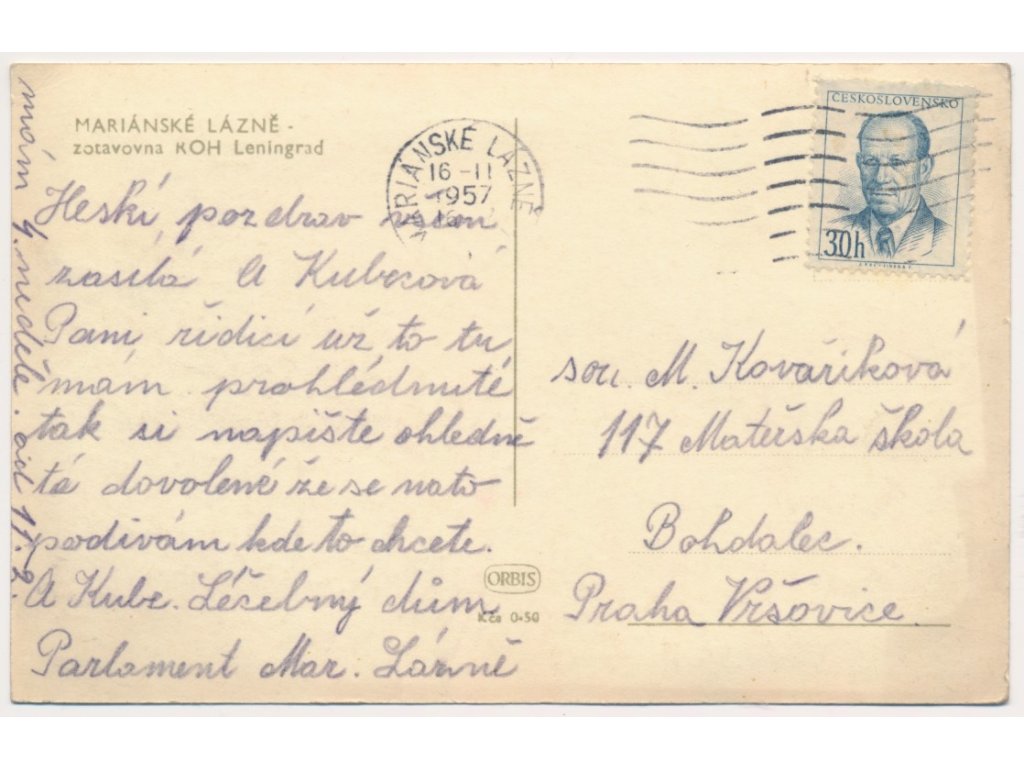 MARIÁNSKÉ LÁZNĚ -
zotavovna ROH Leningrad
Heskí pozdrav všem
zasílá A Kubcová
Paní řidící už to tu
mám prohlédnuté
tak si napište ohledně
té dovolené že se nato
podívám kde to chcete.
A Kube. Léčebný dům
Parlament Mar. Lázně
mám 4. neděle. od 11.-2.
ORBIS
Kčs 0·50
MARIÁNSKÉ LÁZNĚ
16 -II
1957
ČESKOSLOVENSKO
30h
sou. M. Kovaříková
117 Mateřska škola
Bohdalec.
Praha Vršovice.